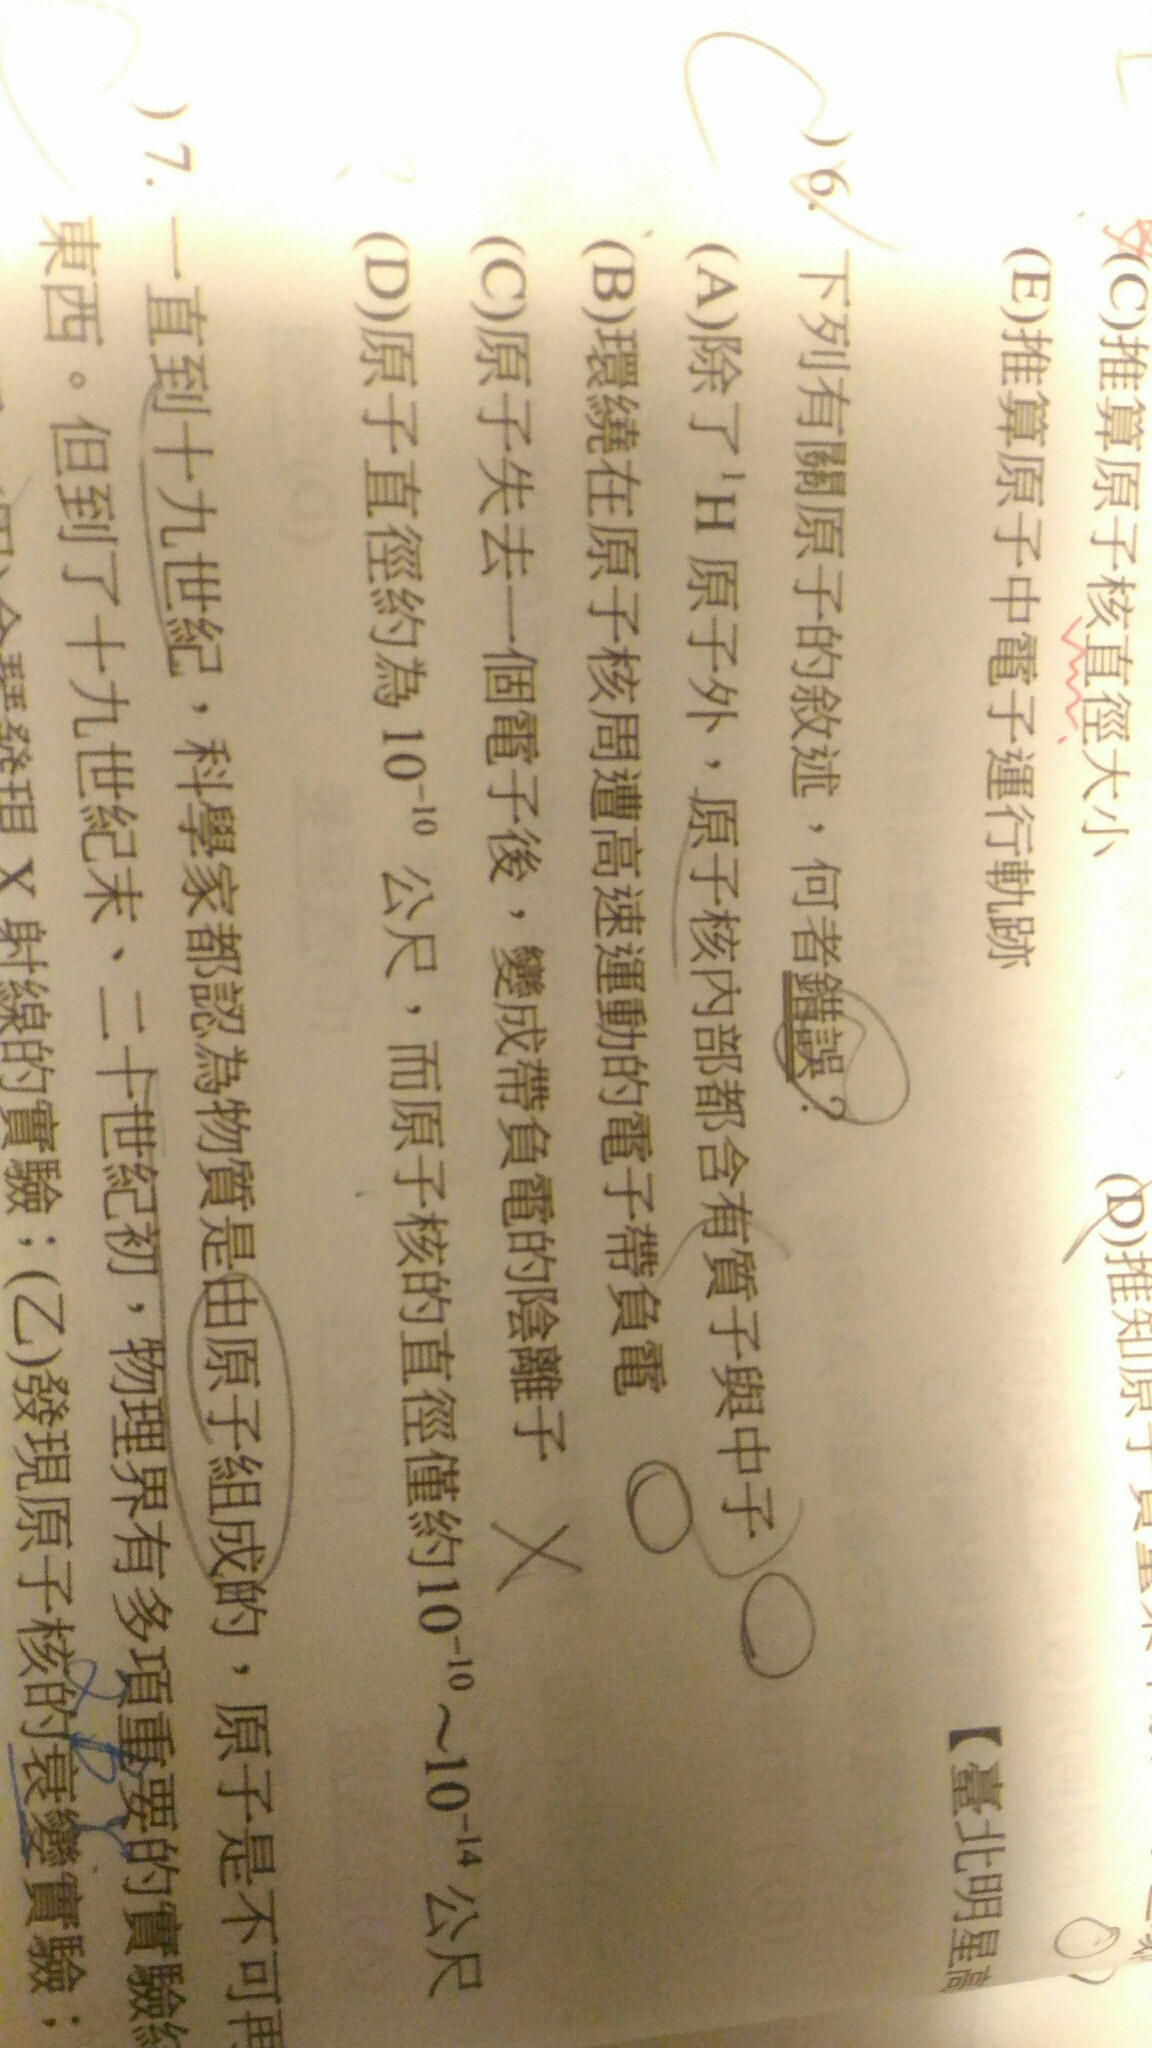 (C)推算原子核直徑大小 (D)推知原子質量
(E)推算原子中電子運行軌跡
【臺北明星高
)6. 下列有關原子的敘述，何者錯誤？
(A)除了¹H 原子外，原子核內部都含有質子與中子
(B)環繞在原子核周遭高速運動的電子帶負電
(C)原子失去一個電子後，變成帶負電的陰離子
(D)原子直徑約為 10⁻¹⁰ 公尺，而原子核的直徑僅約10⁻¹⁰～10⁻¹⁴ 公尺
)7. 一直到十九世紀，科學家都認為物質是由原子組成的，原子是不可再
東西。但到了十九世紀末、二十世紀初，物理界有多項重要的實驗
發現 X 射線的實驗；(乙)發現原子核的衰變實驗；